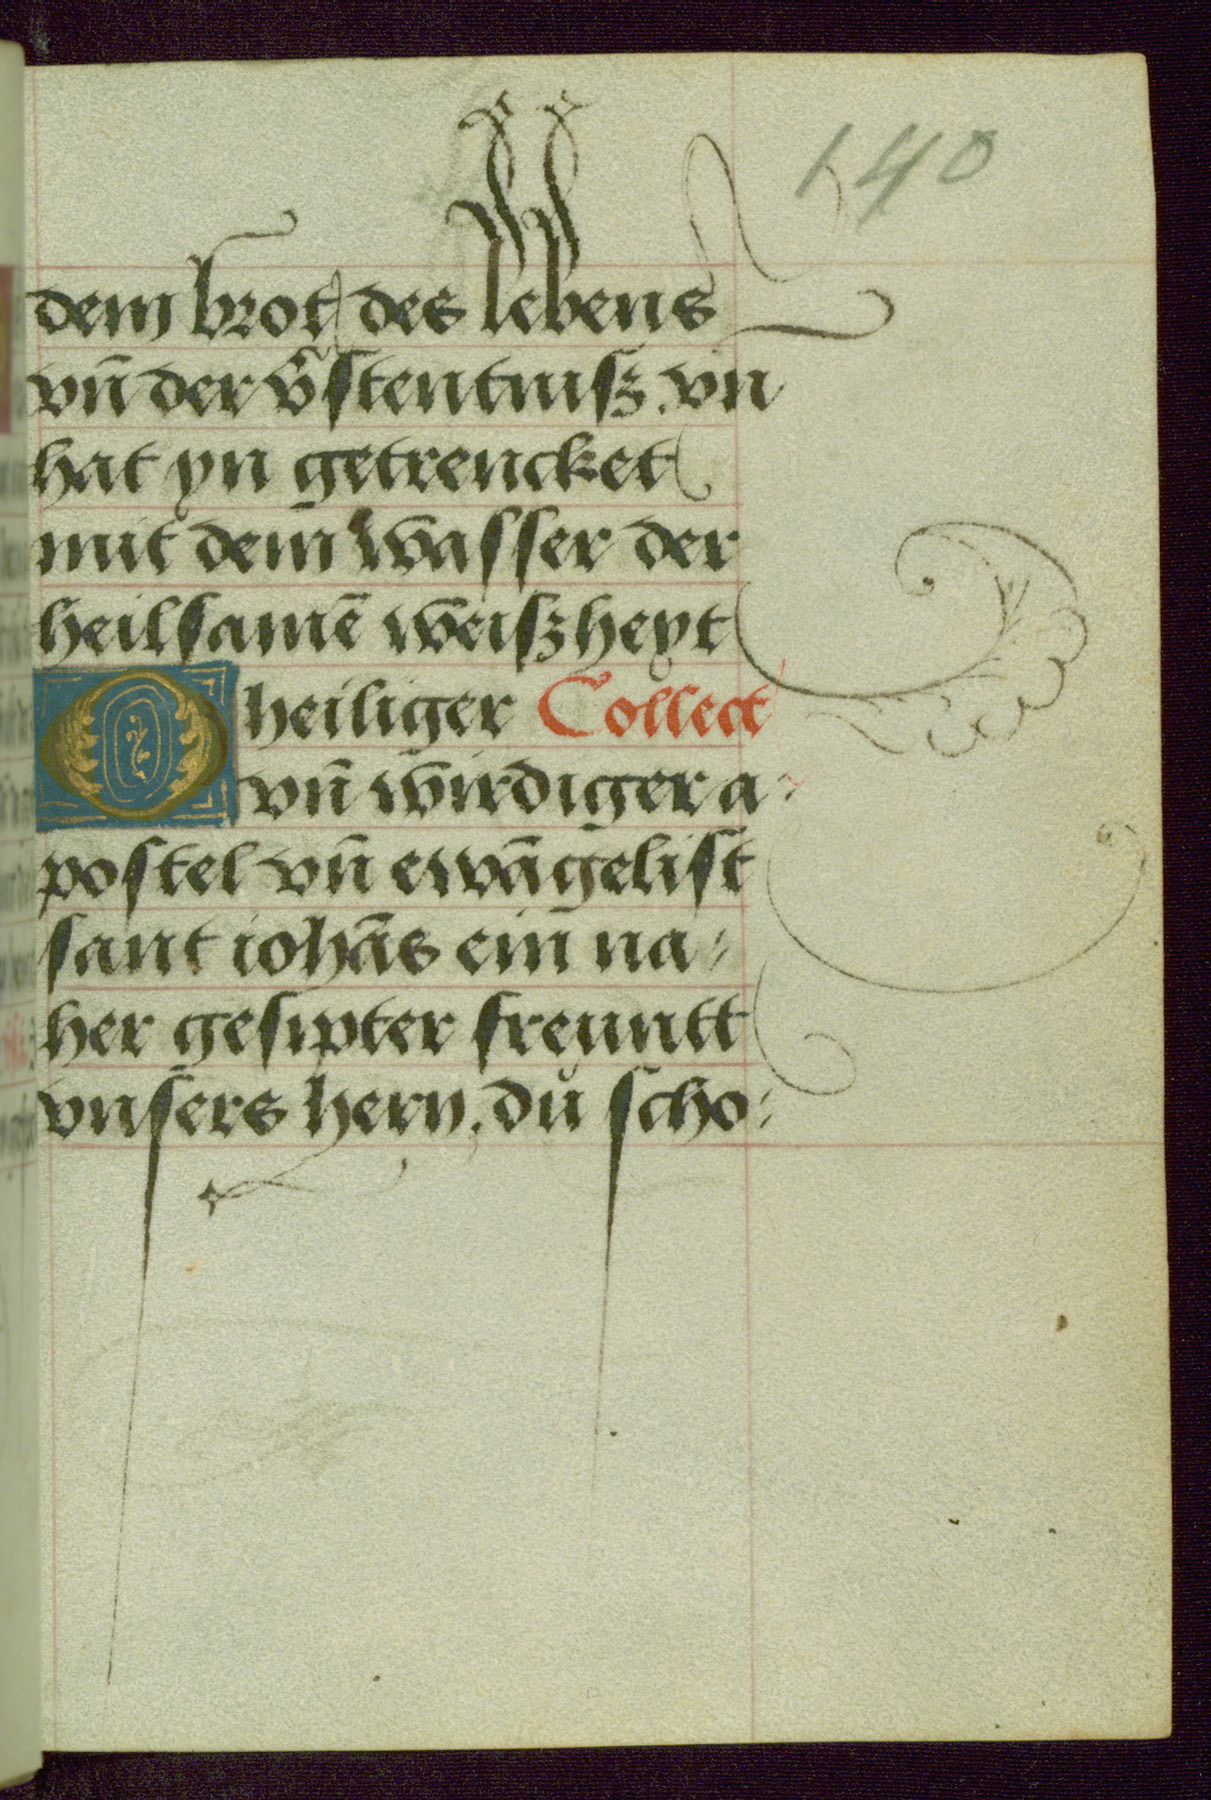 140
dem brot des lebens
vn̄ der v̄stentnisz. vn
hat yn getrencket
mit dem wasser der
heilsamē weiszheyt
O heiliger Collect
vn̄ wirdiger a-
postel vn̄ ewāgelist
sant iohās ein̄ na-
her gesipter freuntt
vnsers hern. dů scho-